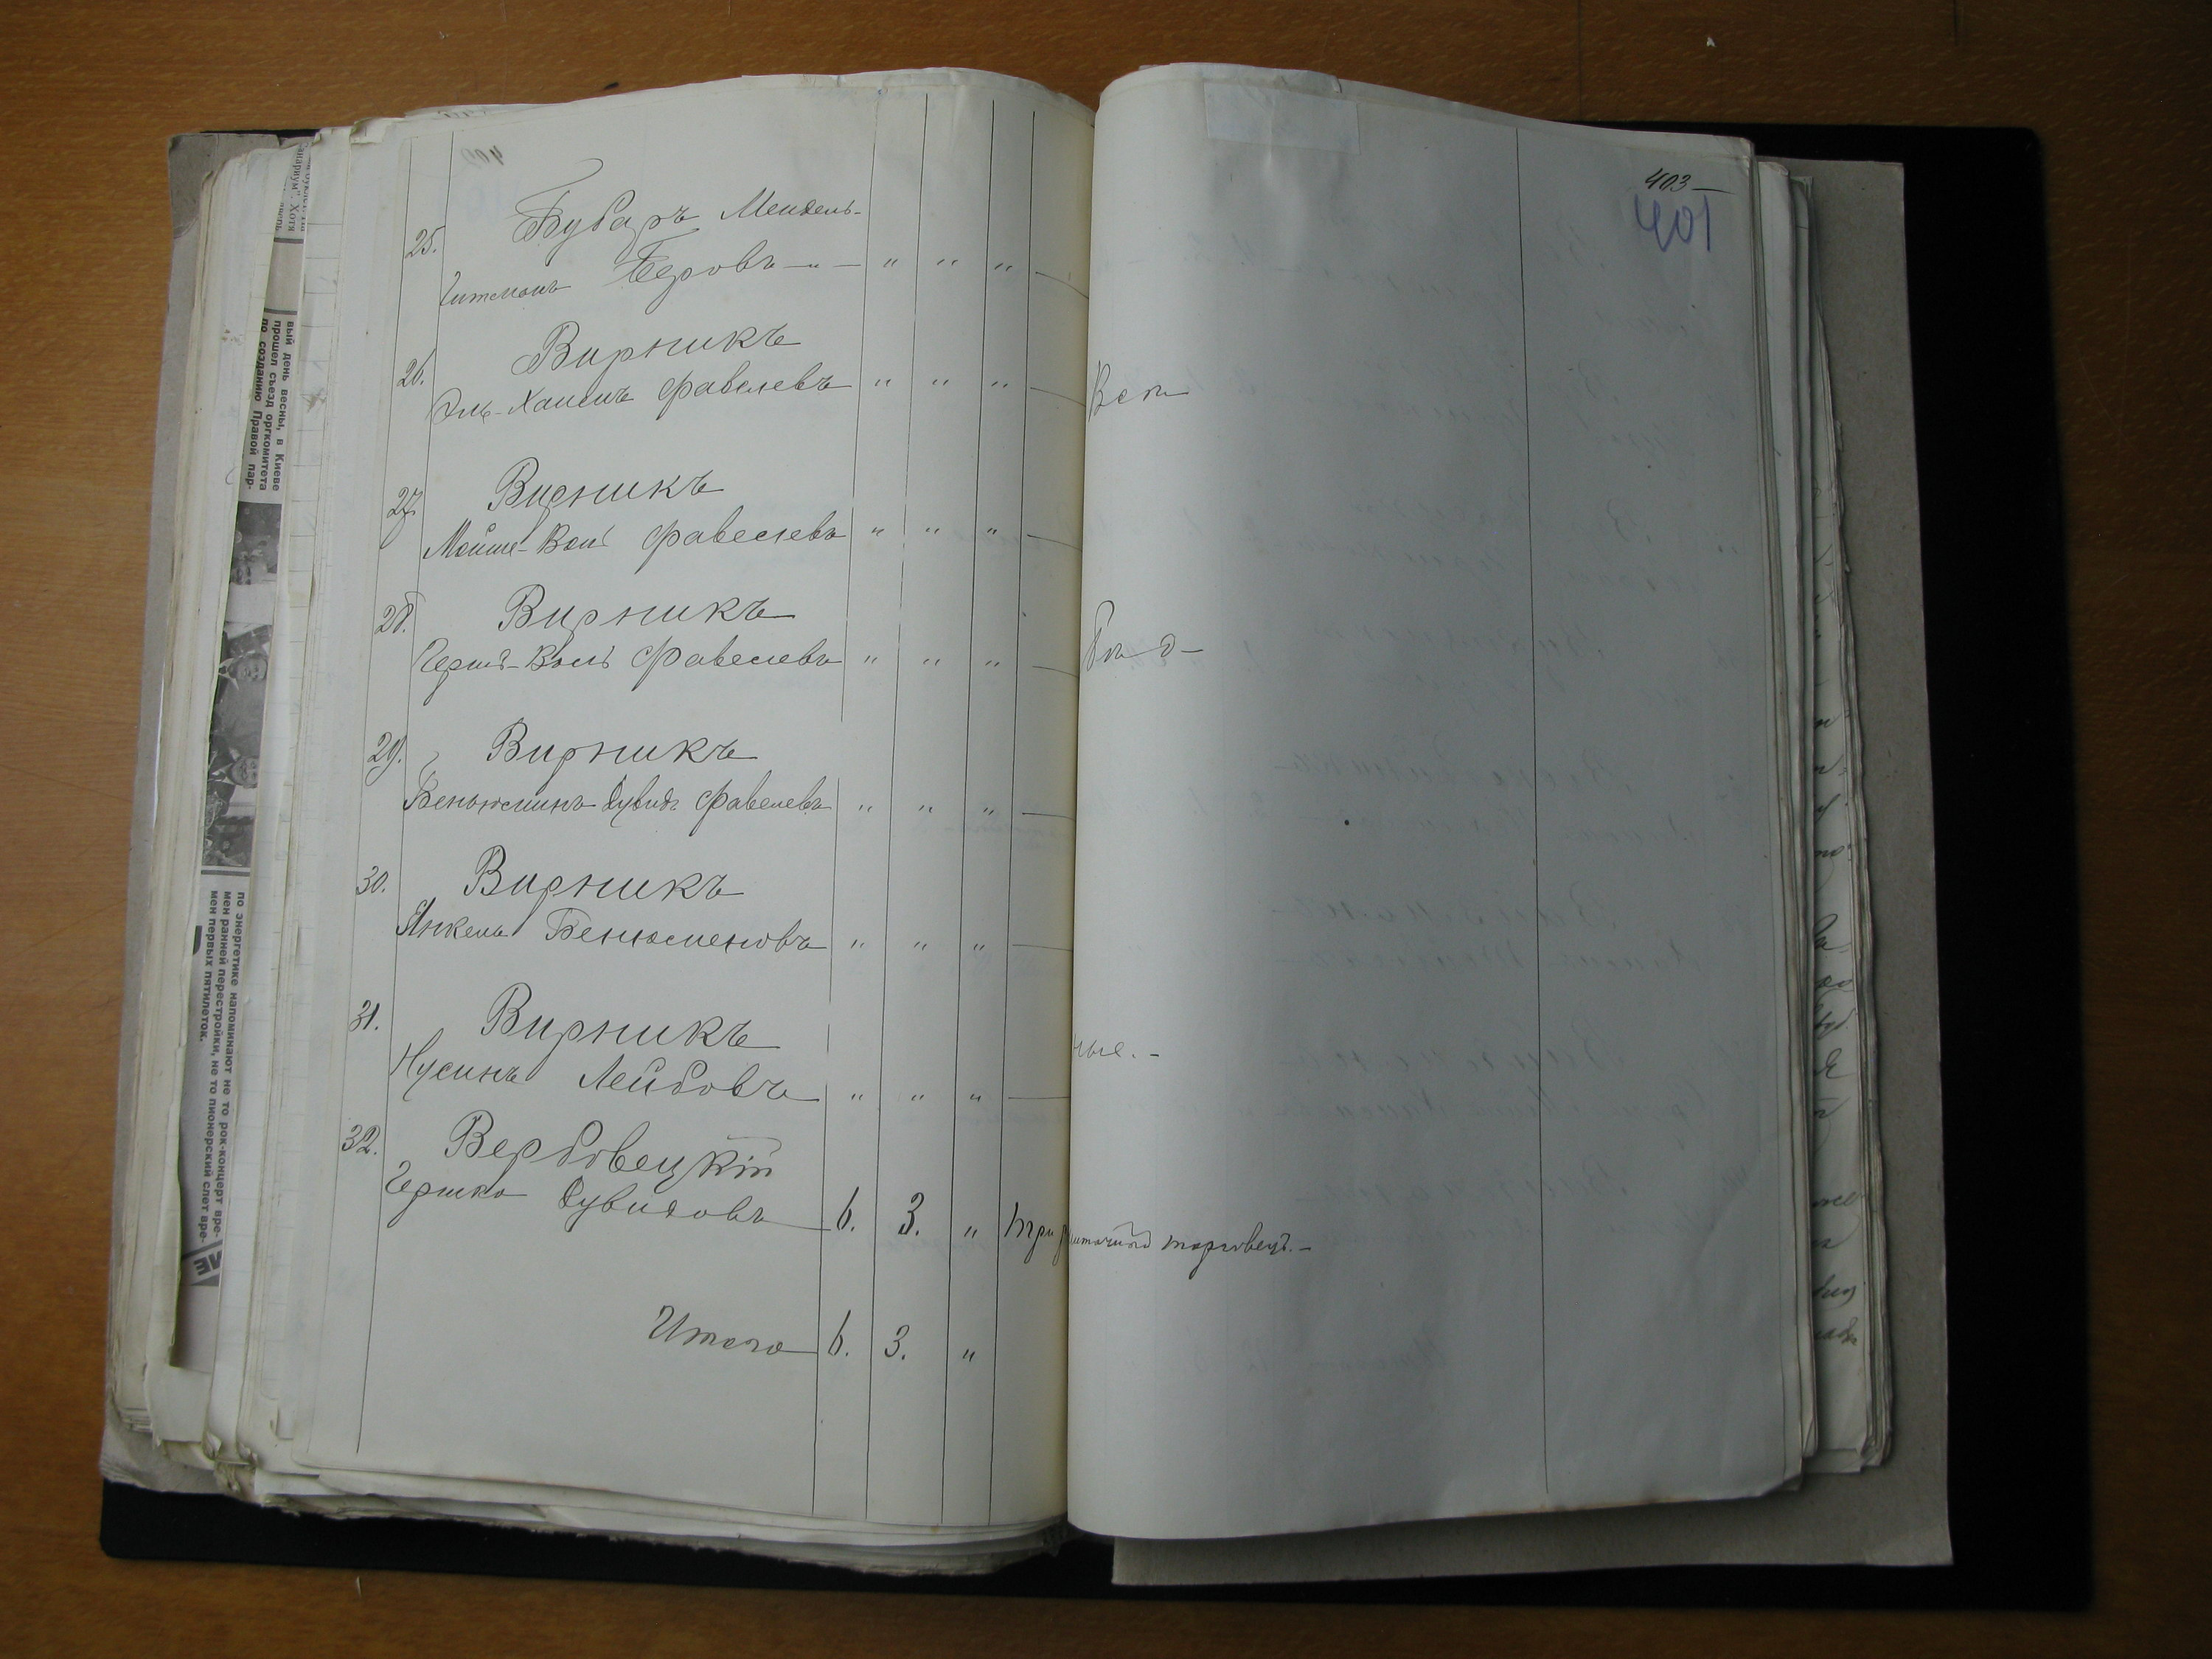 403
401
25. Бубаръ Мендель-
Гитманъ Беровъ — „ — „ „ „ —
26. Вирникъ
Эль-Хаимъ Фавелевъ „ „ „ — Всѣ
27. Вирникъ
Мойше-Волъ Фавелевъ „ „ „ —
28. Вирникъ
Гершъ-Волъ Фавелевъ „ „ „ — бѣд-
29. Вирникъ
Беньюминъ Дувидъ Фавелевъ „ „ „ —
30. Вирникъ
Янкель Бенюменовъ „ „ „ —
31. Вирникъ
Нусинъ Лейбовъ „ „ „ — ные. -
32. Вербовецкій
Гершко Дувидовъ 6. 3. „ торговецъ. -
Итого 6. 3. „
вый день весны, в Киеве
прошел съезд оргкомитета
по созданию Правой пар-
по энергетике напоминают не то рок-концерт вре-
мен ранней перестройки, не то пионерский слет вре-
мен первых пятилеток.